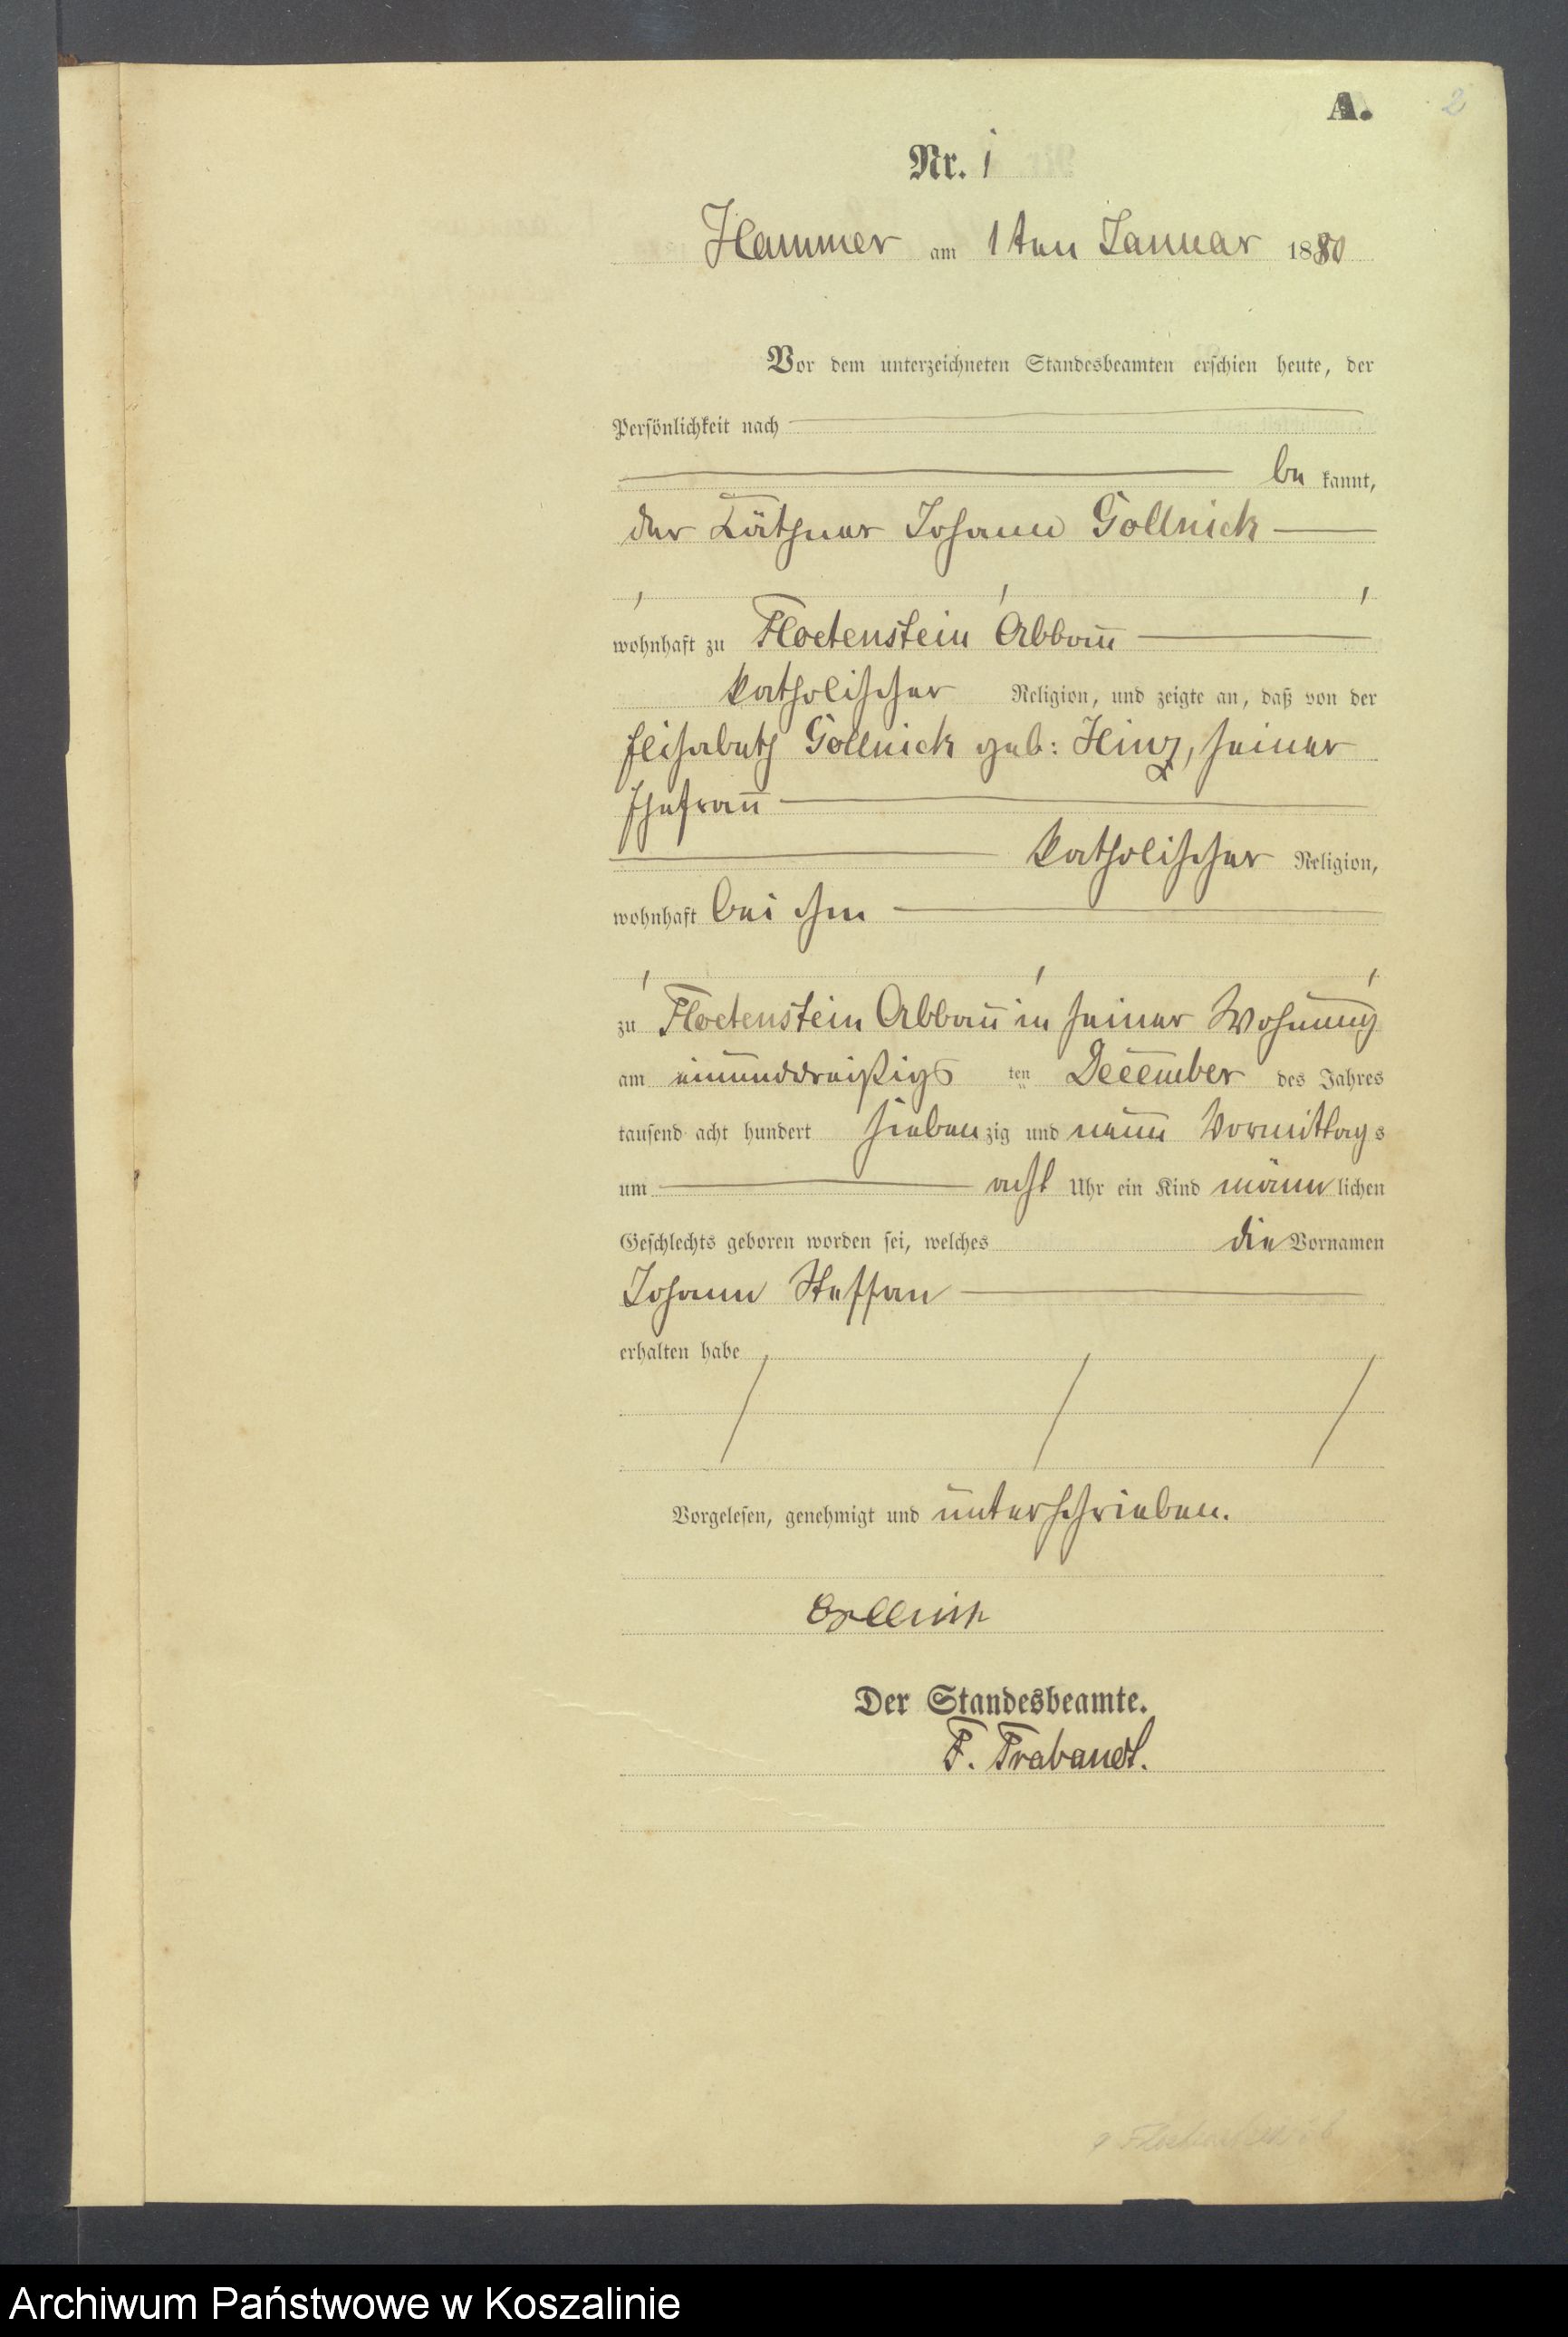 A. 2
Nr. 1
Hammer am 1ten Januar 1880
Vor dem unterzeichneten Standesbeamten erschien heute, der
Persönlichkeit nach
be kannt,
der Käthner Johann Gollnick
wohnhaft zu Floetenstein Abbau
katholischer Religion, und zeigte an, daß von der
Elisabeth Gollnick geb: Hinz, seiner
Ehefrau
katholischer Religion,
wohnhaft bei ihm
zu Floetenstein Abbau in seiner Wohnung
am einunddreißigs ten December des Jahres
tausend acht hundert sieben zig und neun Vormittags
um acht Uhr ein Kind männ lichen
Geschlechts geboren worden sei, welches die Vornamen
Johann Steffan
erhalten habe
Vorgelesen, genehmigt und unterschrieben.
Gollnick
Der Standesbeamte.
F. Trabandt.
Archiwum Państwowe w Koszalinie